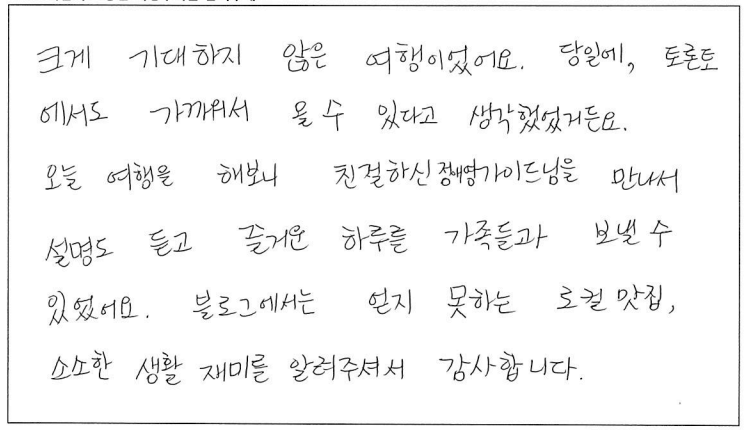 크게 기대하지 않은 여행이었어요. 당일에, 토론토
에서도 가까워서 올 수 있다고 생각했었거든요.
오늘 여행을 해보니 친절하신 정애영가이드님을 만나서
설명도 듣고 즐거운 하루를 가족들과 보낼 수
있었어요. 블로그에서는 얻지 못하는 로컬 맛집,
소소한 생활 재미를 알려주셔서 감사합니다.